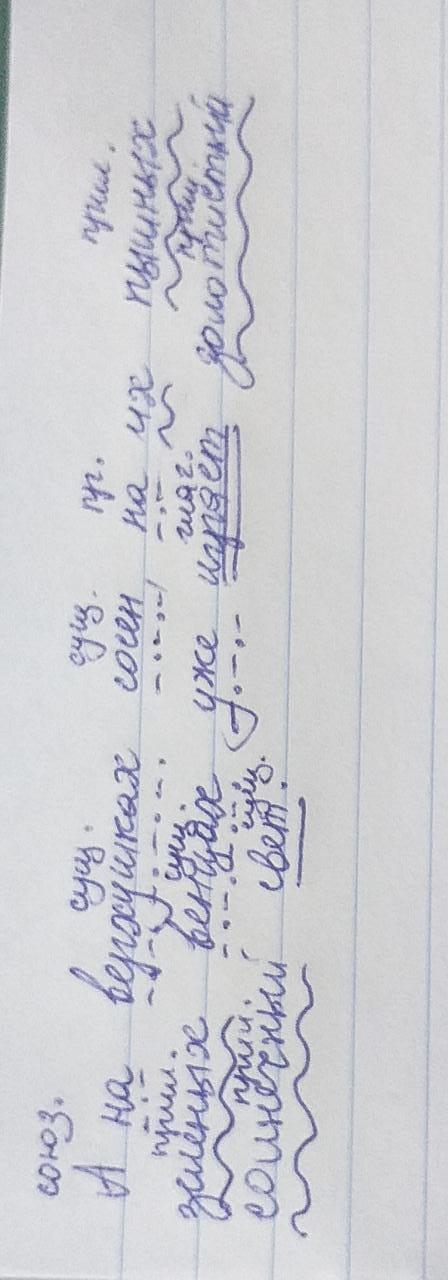 союз. сущ. сущ. пр. прил.
А на верхушках сосен на их пышных
прил. сущ. глаг. прил.
зеленых венцах уже играет золотистый
прил. сущ.
солнечный свет.